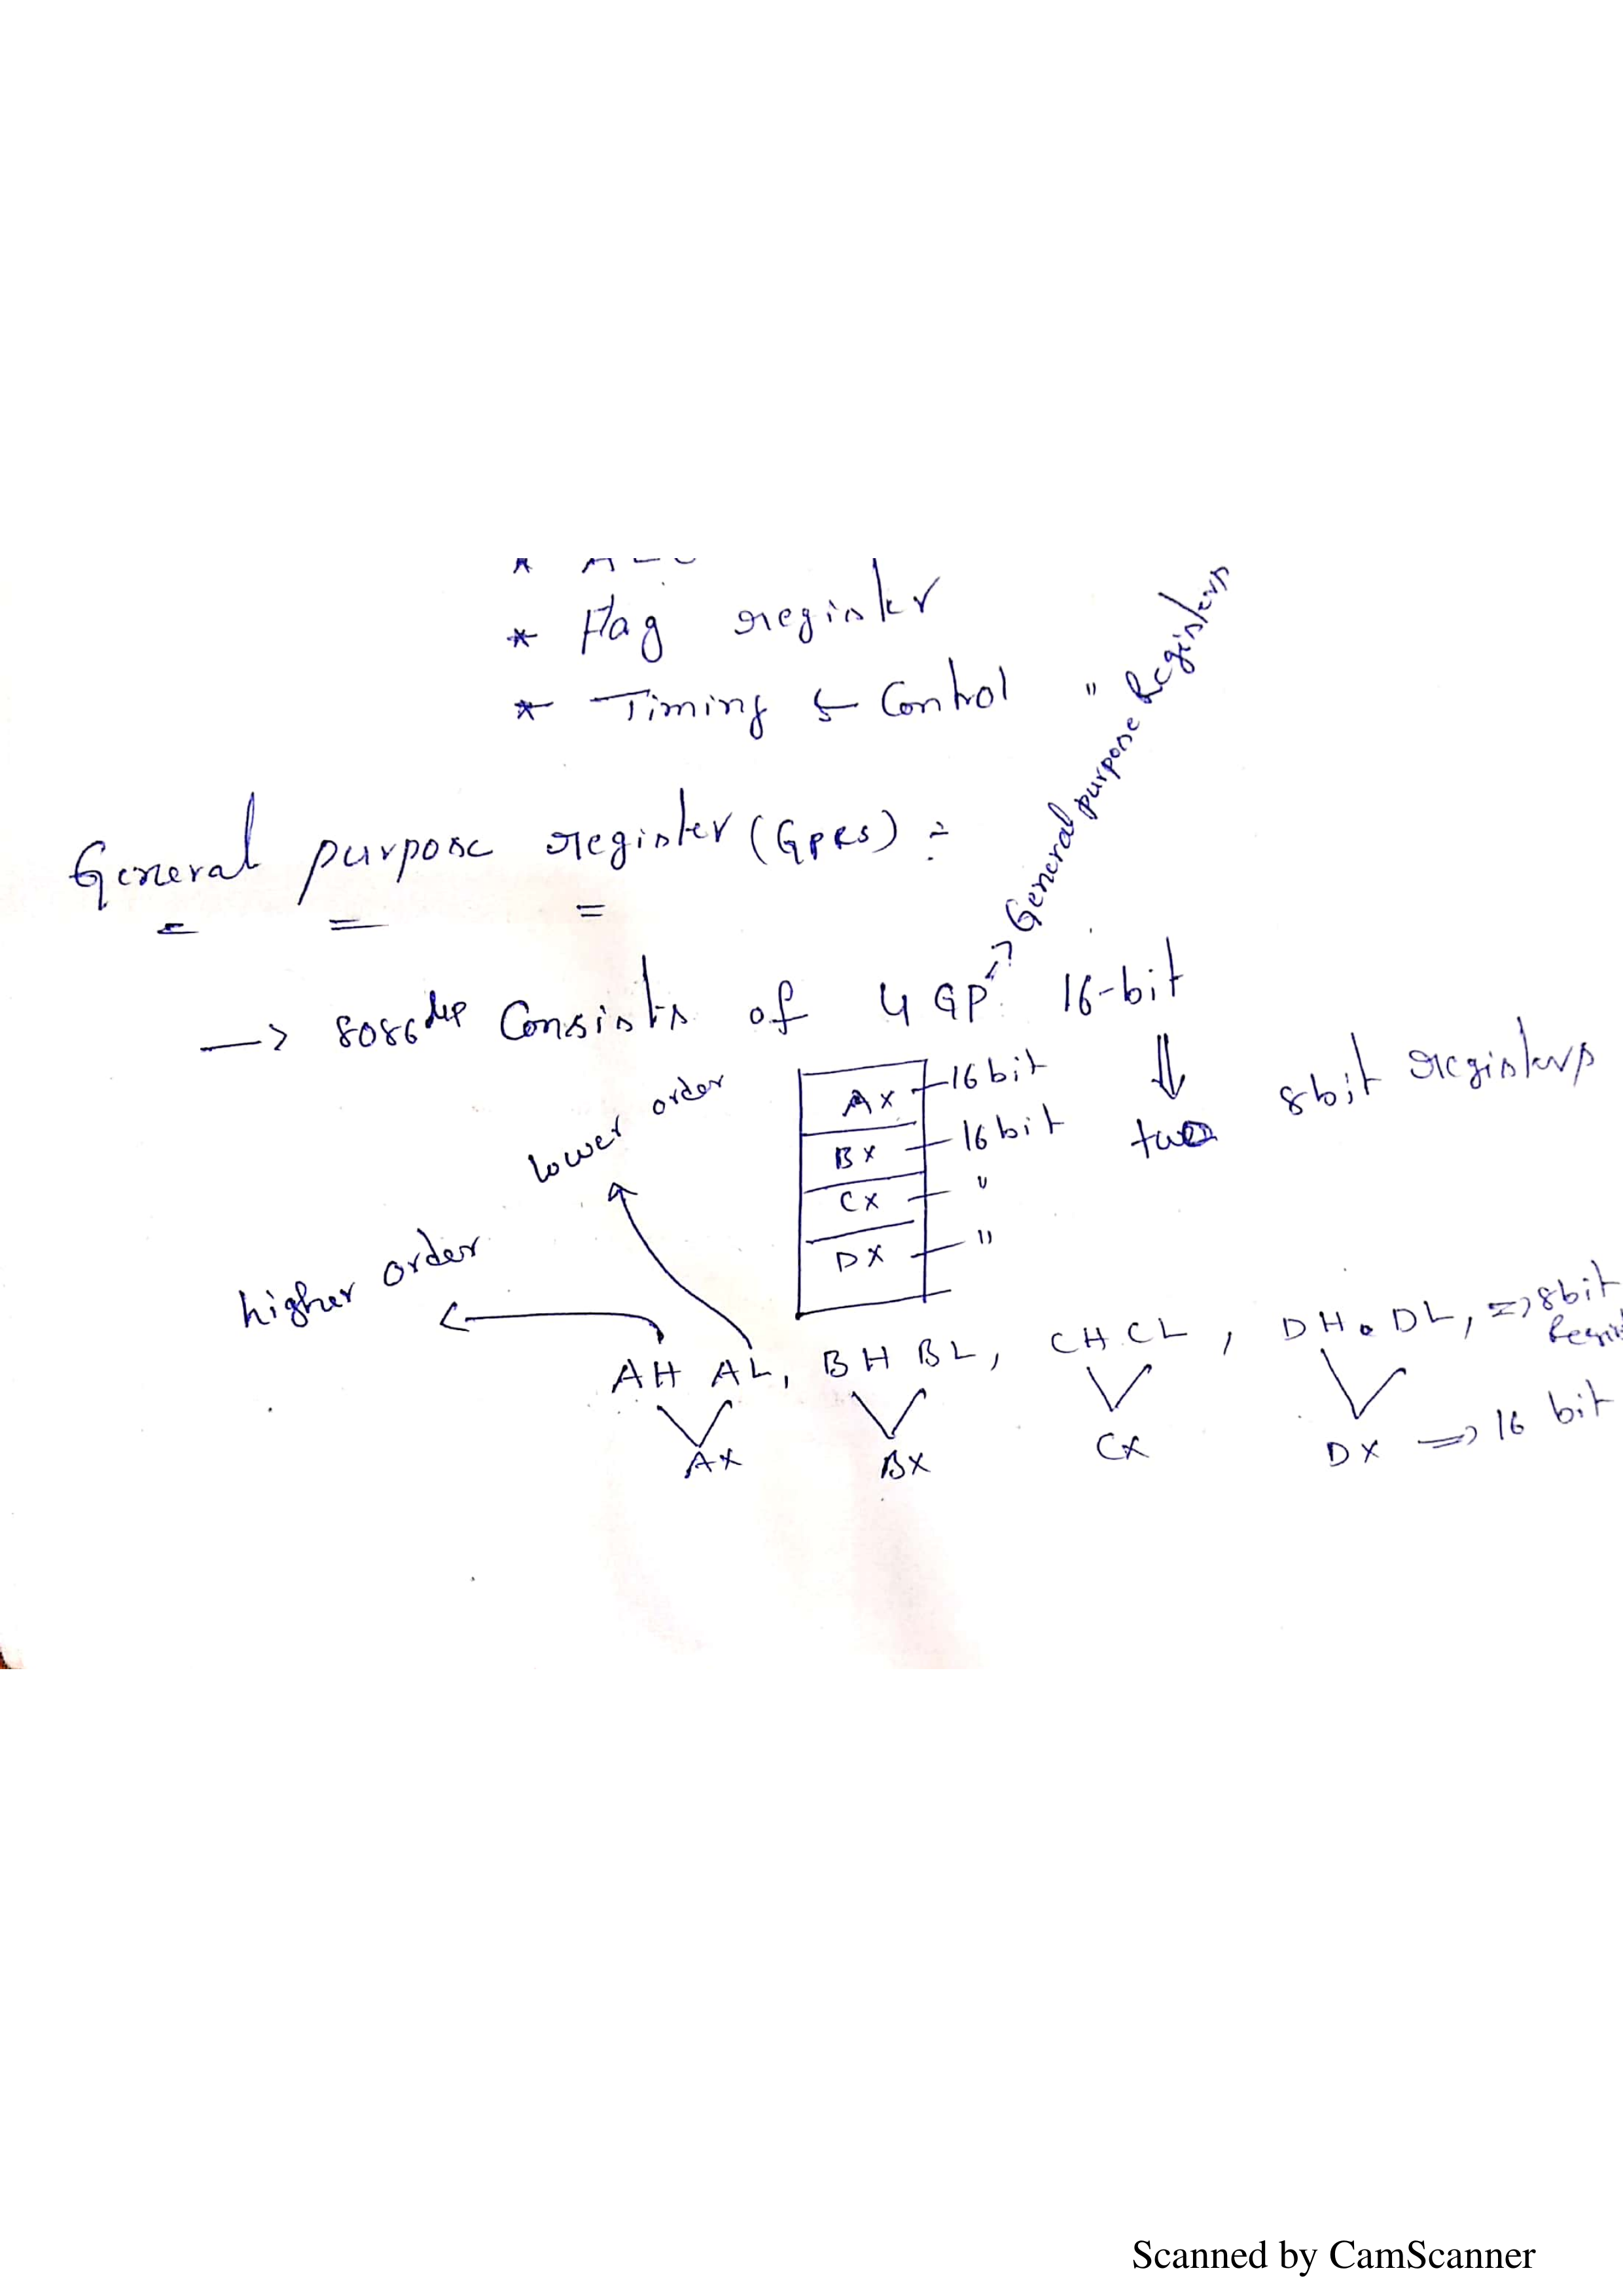 * Flag register
* Timing & Control "
General purpose register (GPRS) :-
→ 8086 μp Consists of 4 GP → General purpose Registers 16-bit
⇓
two 8bit registers
AX - 16 bit
BX - 16 bit
CX - "
DX - "
lower order
higher order
AH AL, BH BL, CH CL, DH DL, => 8bit
AX BX CX DX => 16 bit
Scanned by CamScanner